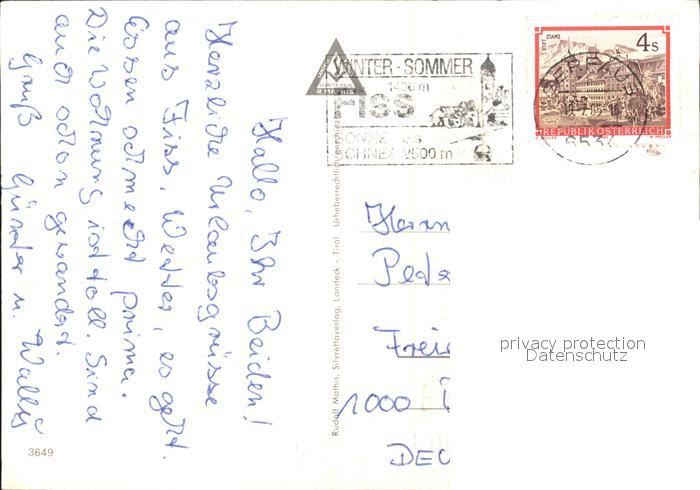 Hallo, Ihr Beiden!
Herzliche Urlaubsgrüsse
aus Fiss. Wetter, es geht.
Essen schmeckt prima.
Die Wohnung ist toll. Sind
auch schon gewandert.
Gruß Günter u. Wally
3649
Rudolf Mathis, Silvrettaverlag, Landeck - Tirol. Urheberrechtlich
R. MATHIS
WINTER - SOMMER
1436 m
FISS
SONNE
SCHNEE 2500 m
STIFT STAMS
4 S
REPUBLIK ÖSTERREICH
6534
Herrn
Pete
Freie
1000
DEU
privacy protection
Datenschutz